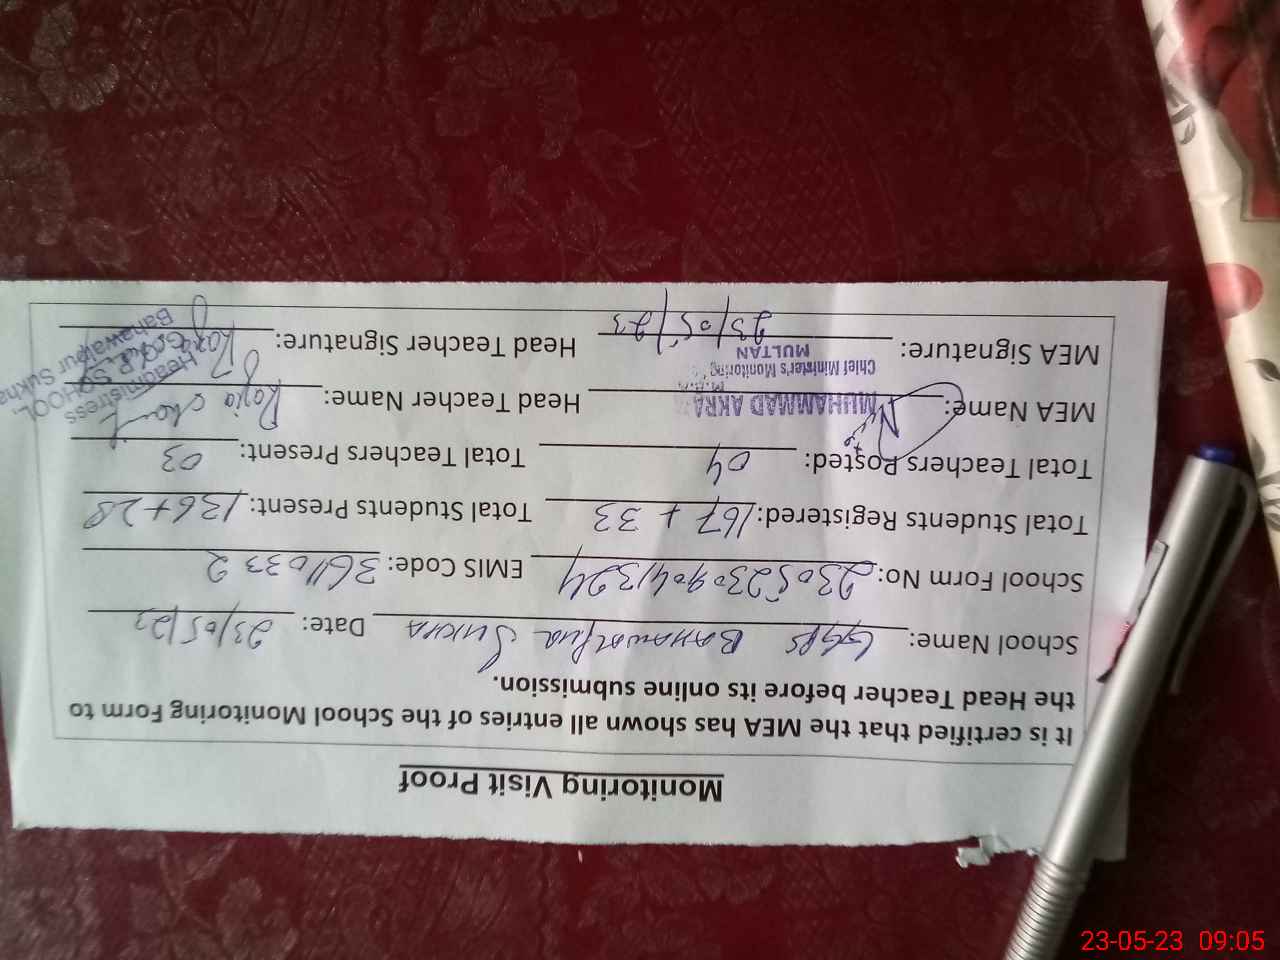 Monitoring Visit Proof
It is certified that the MEA has shown all entries of the School Monitoring Form to
the Head Teacher before its online submission.
School Name: GGPS Bahawalpur Sukha Date: 23/05/23
School Form No: 23052309041324 EMIS Code: 36110332
Total Students Registered: 167 + 33 Total Students Present: 136+28
Total Teachers Posted: 04 Total Teachers Present: 03
MEA Name: MUHAMMAD AKRA Head Teacher Name: Razia
Chief Minister's Monitoring
MULTAN
MEA Signature: 23/05/23 Head Teacher Signature: Razia
Headmistress
SCHOOL
Bahawalpur Sukha
23-05-23 09:05